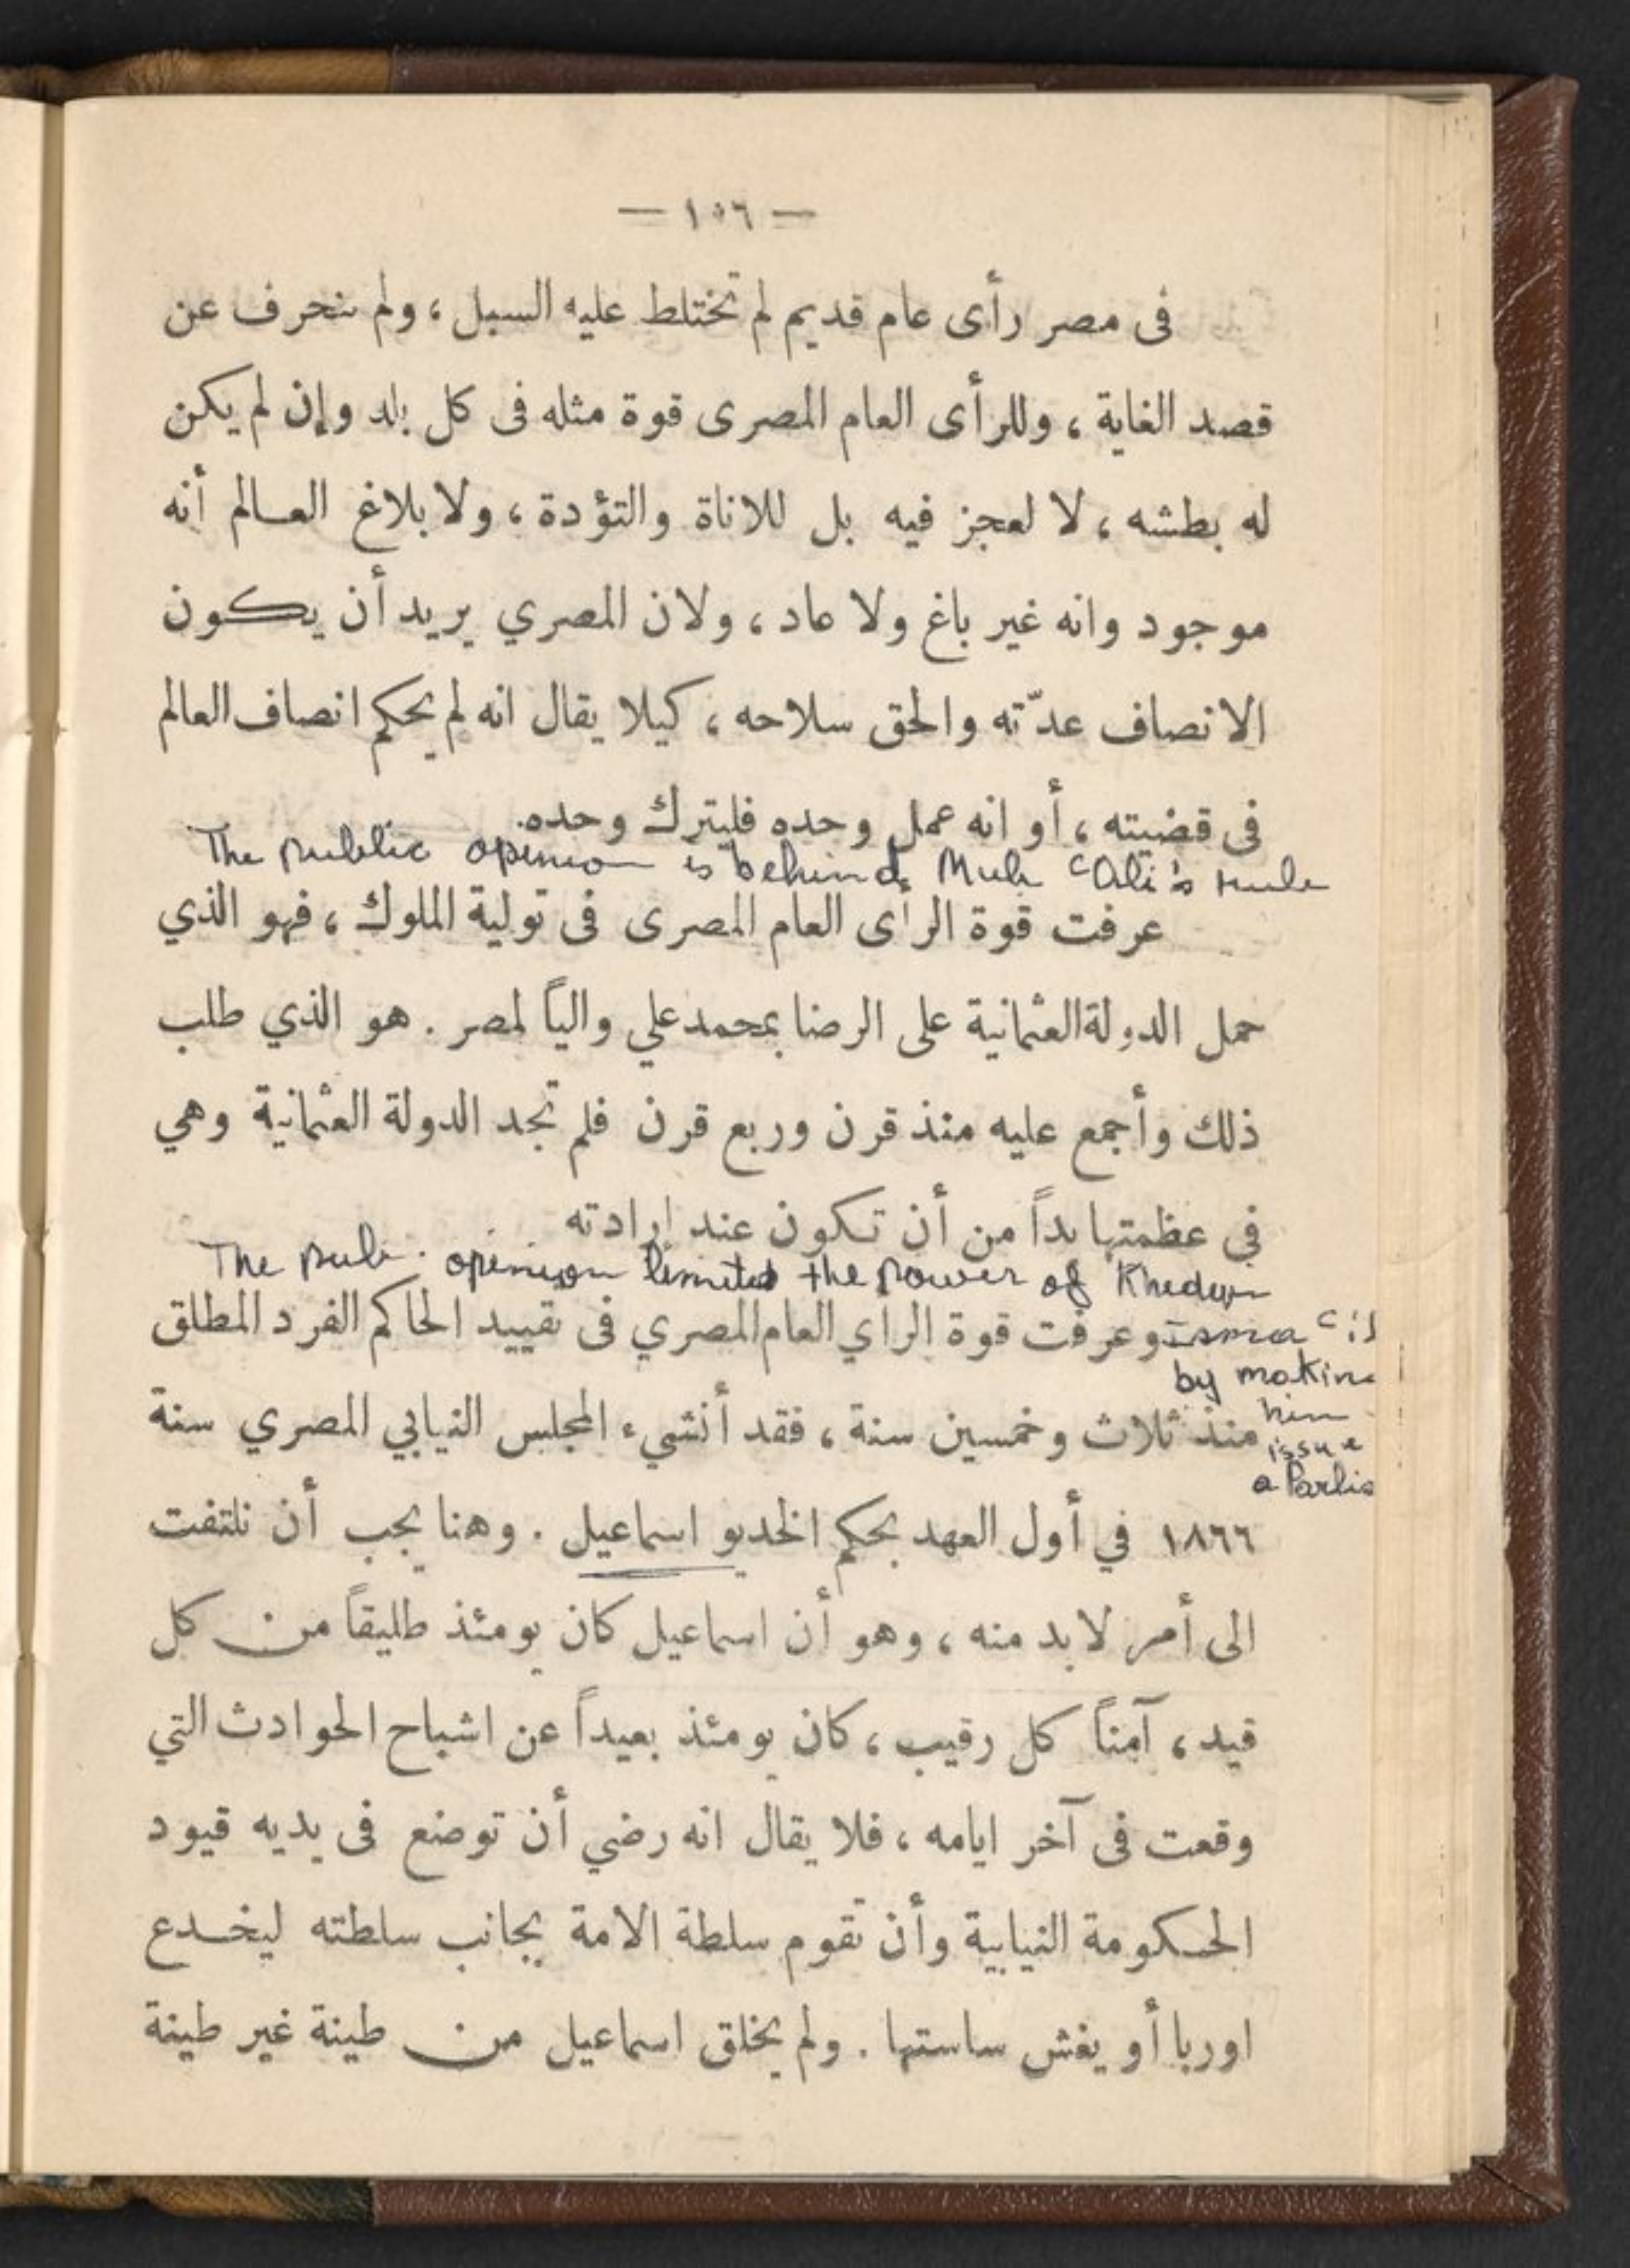 — ١٥٦ —
فى مصر رأى عام قديم لم تختلط عليه السبل ، ولم ينحرف عن
قصد الغاية ، وللرأى العام المصرى قوة مثله فى كل بلد وإن لم يكن
له بطشه ، لا لعجز فيه بل للاناة والتؤدة ، ولا بلاغ العالم أنه
موجود وانه غير باغ ولا عاد ، ولان المصري يريد أن يكون
الانصاف عدّته والحق سلاحه ، كيلا يقال انه لم يحكم انصاف العالم
فى قضيته ، أو انه عمل وحده فليترك وحده.
The public opinion is behind Muh ʿAli's rule
عرفت قوة الرأى العام المصرى فى تولية الملوك ، فهو الذي
حمل الدولة العثمانية على الرضا بمحمد علي والياً لمصر . هو الذي طلب
ذلك وأجمع عليه منذ قرن وربع قرن فلم تجد الدولة العثمانية وهي
في عظمتها بداً من أن تكون عند إرادته
The pub. opinion limited the power of Khediv
Ismaʿil
وعرفت قوة الرأي العام المصري فى تقييد الحاكم الفرد المطلق
by making
him
منذ ثلاث وخمسين سنة ، فقد أنشيء المجلس النيابي المصري سنة
issue
a Parlia
١٨٦٦ في أول العهد بحكم الخديو اسماعيل . وهنا يجب أن نلتفت
الى أمر لابد منه ، وهو أن اسماعيل كان يومئذ طليقاً من كل
قيد ، آمناً كل رقيب ، كان يومئذ بعيداً عن اشباح الحوادث التي
وقعت فى آخر ايامه ، فلا يقال انه رضي أن توضع فى يديه قيود
الحكومة النيابية وأن تقوم سلطة الامة بجانب سلطته ليخدع
اوربا أو يغش ساستها . ولم يخلق اسماعيل من طينة غير طينة